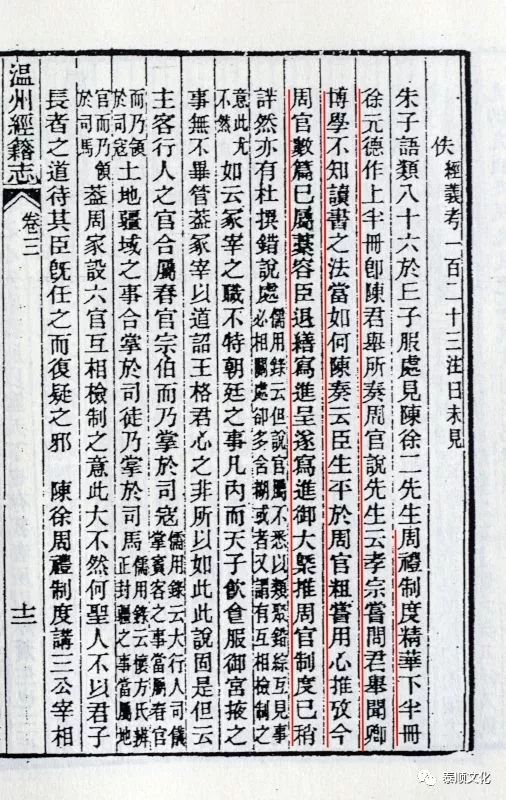 佚經義考一百二十三注曰未見
朱子語類八十六於王子服處見陳徐二先生周禮制度精華下半冊
徐元德作上半冊卽陳君舉所奏周官說先生云孝宗嘗問君舉聞卿
博學不知讀書之法當如何陳奏云臣生平於周官粗嘗用心推攷今
周官數篇已屬藁容臣退繕寫進呈遂寫進御大槩推周官制度已稍
詳然亦有杜撰錯說處儒用錄云但說官屬不悉以類聚錯綜互見事必相關處卻多含糊或者又謂有互相檢制之
意此尤不然如云冢宰之職不特朝廷之事凡內而天子飲食服御宮掖之
事無不畢管葢冢宰以道詔王格君心之非所以如此此說固是但云
主客行人之官合屬春官宗伯而乃掌於司寇儒用錄云大行人司儀掌賓客之事當屬春官
而乃領於司寇土地疆域之事合掌於司徒乃掌於司馬儒用錄云懷方氏辨正封疆之事當屬地
官而乃領於司馬葢周家設六官互相檢制之意此大不然何聖人不以君子
長者之道待其臣旣任之而復疑之邪 陳徐周禮制度講三公宰相
溫州經籍志 卷三 十二
泰顺文化